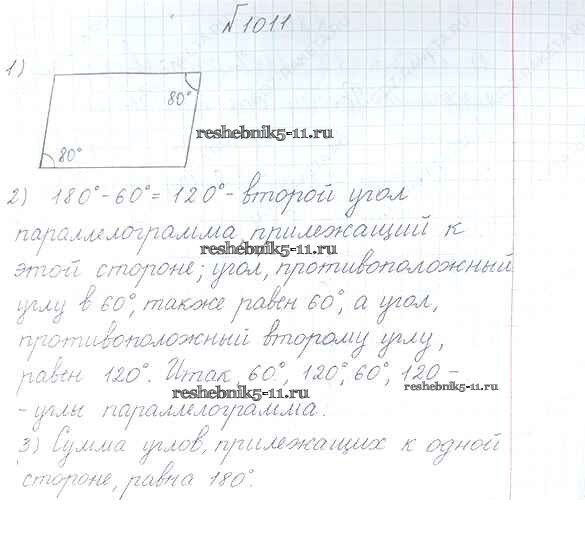 №1011
1)
80°
reshebnik5-11.ru
80°
2) 180° - 60° = 120° - второй угол
параллелограмма прилежащий к
reshebnik5-11.ru
этой стороне; угол, противоположный
углу в 60°, также равен 60°, а угол,
противоположный второму углу,
равен 120°. Итак 60°, 120°, 60°, 120 -
reshebnik5-11.ru
reshebnik5-11.ru
- углы параллелограмма.
3) Сумма углов, прилежащих к одной
стороне, равна 180°.